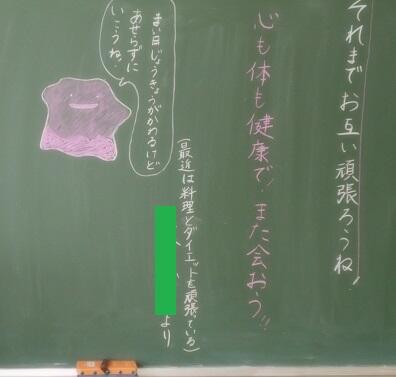 それまでお互い頑張ろうね!
心も体も健康で!また会おう!!
(最近は料理とダイエットを頑張っている)
より
まい日じょうきょうがかわるけど
あせらずに
いこうね!